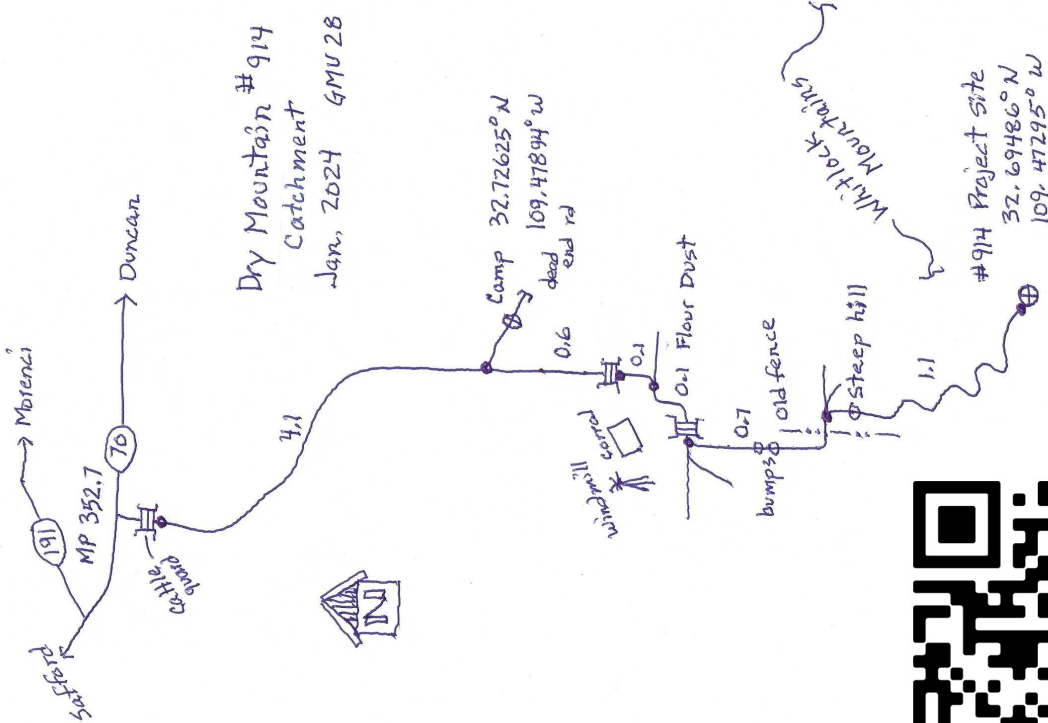 Dry Mountain #914
Catchment
Jan, 2024 GMU 28
Morenci
191
Safford
MP 352.7
70
Duncan
cattle
guard
N
4.1
Camp 32.72625° N
109.47894° W
dead
end rd
0.6
0.1
0.1 Flour Dust
windmill
corral
0.7
bumps
Old fence
Steep hill
1.1
Whitlock
Mountains
#914 Project Site
32.69486° N
109.47295° W